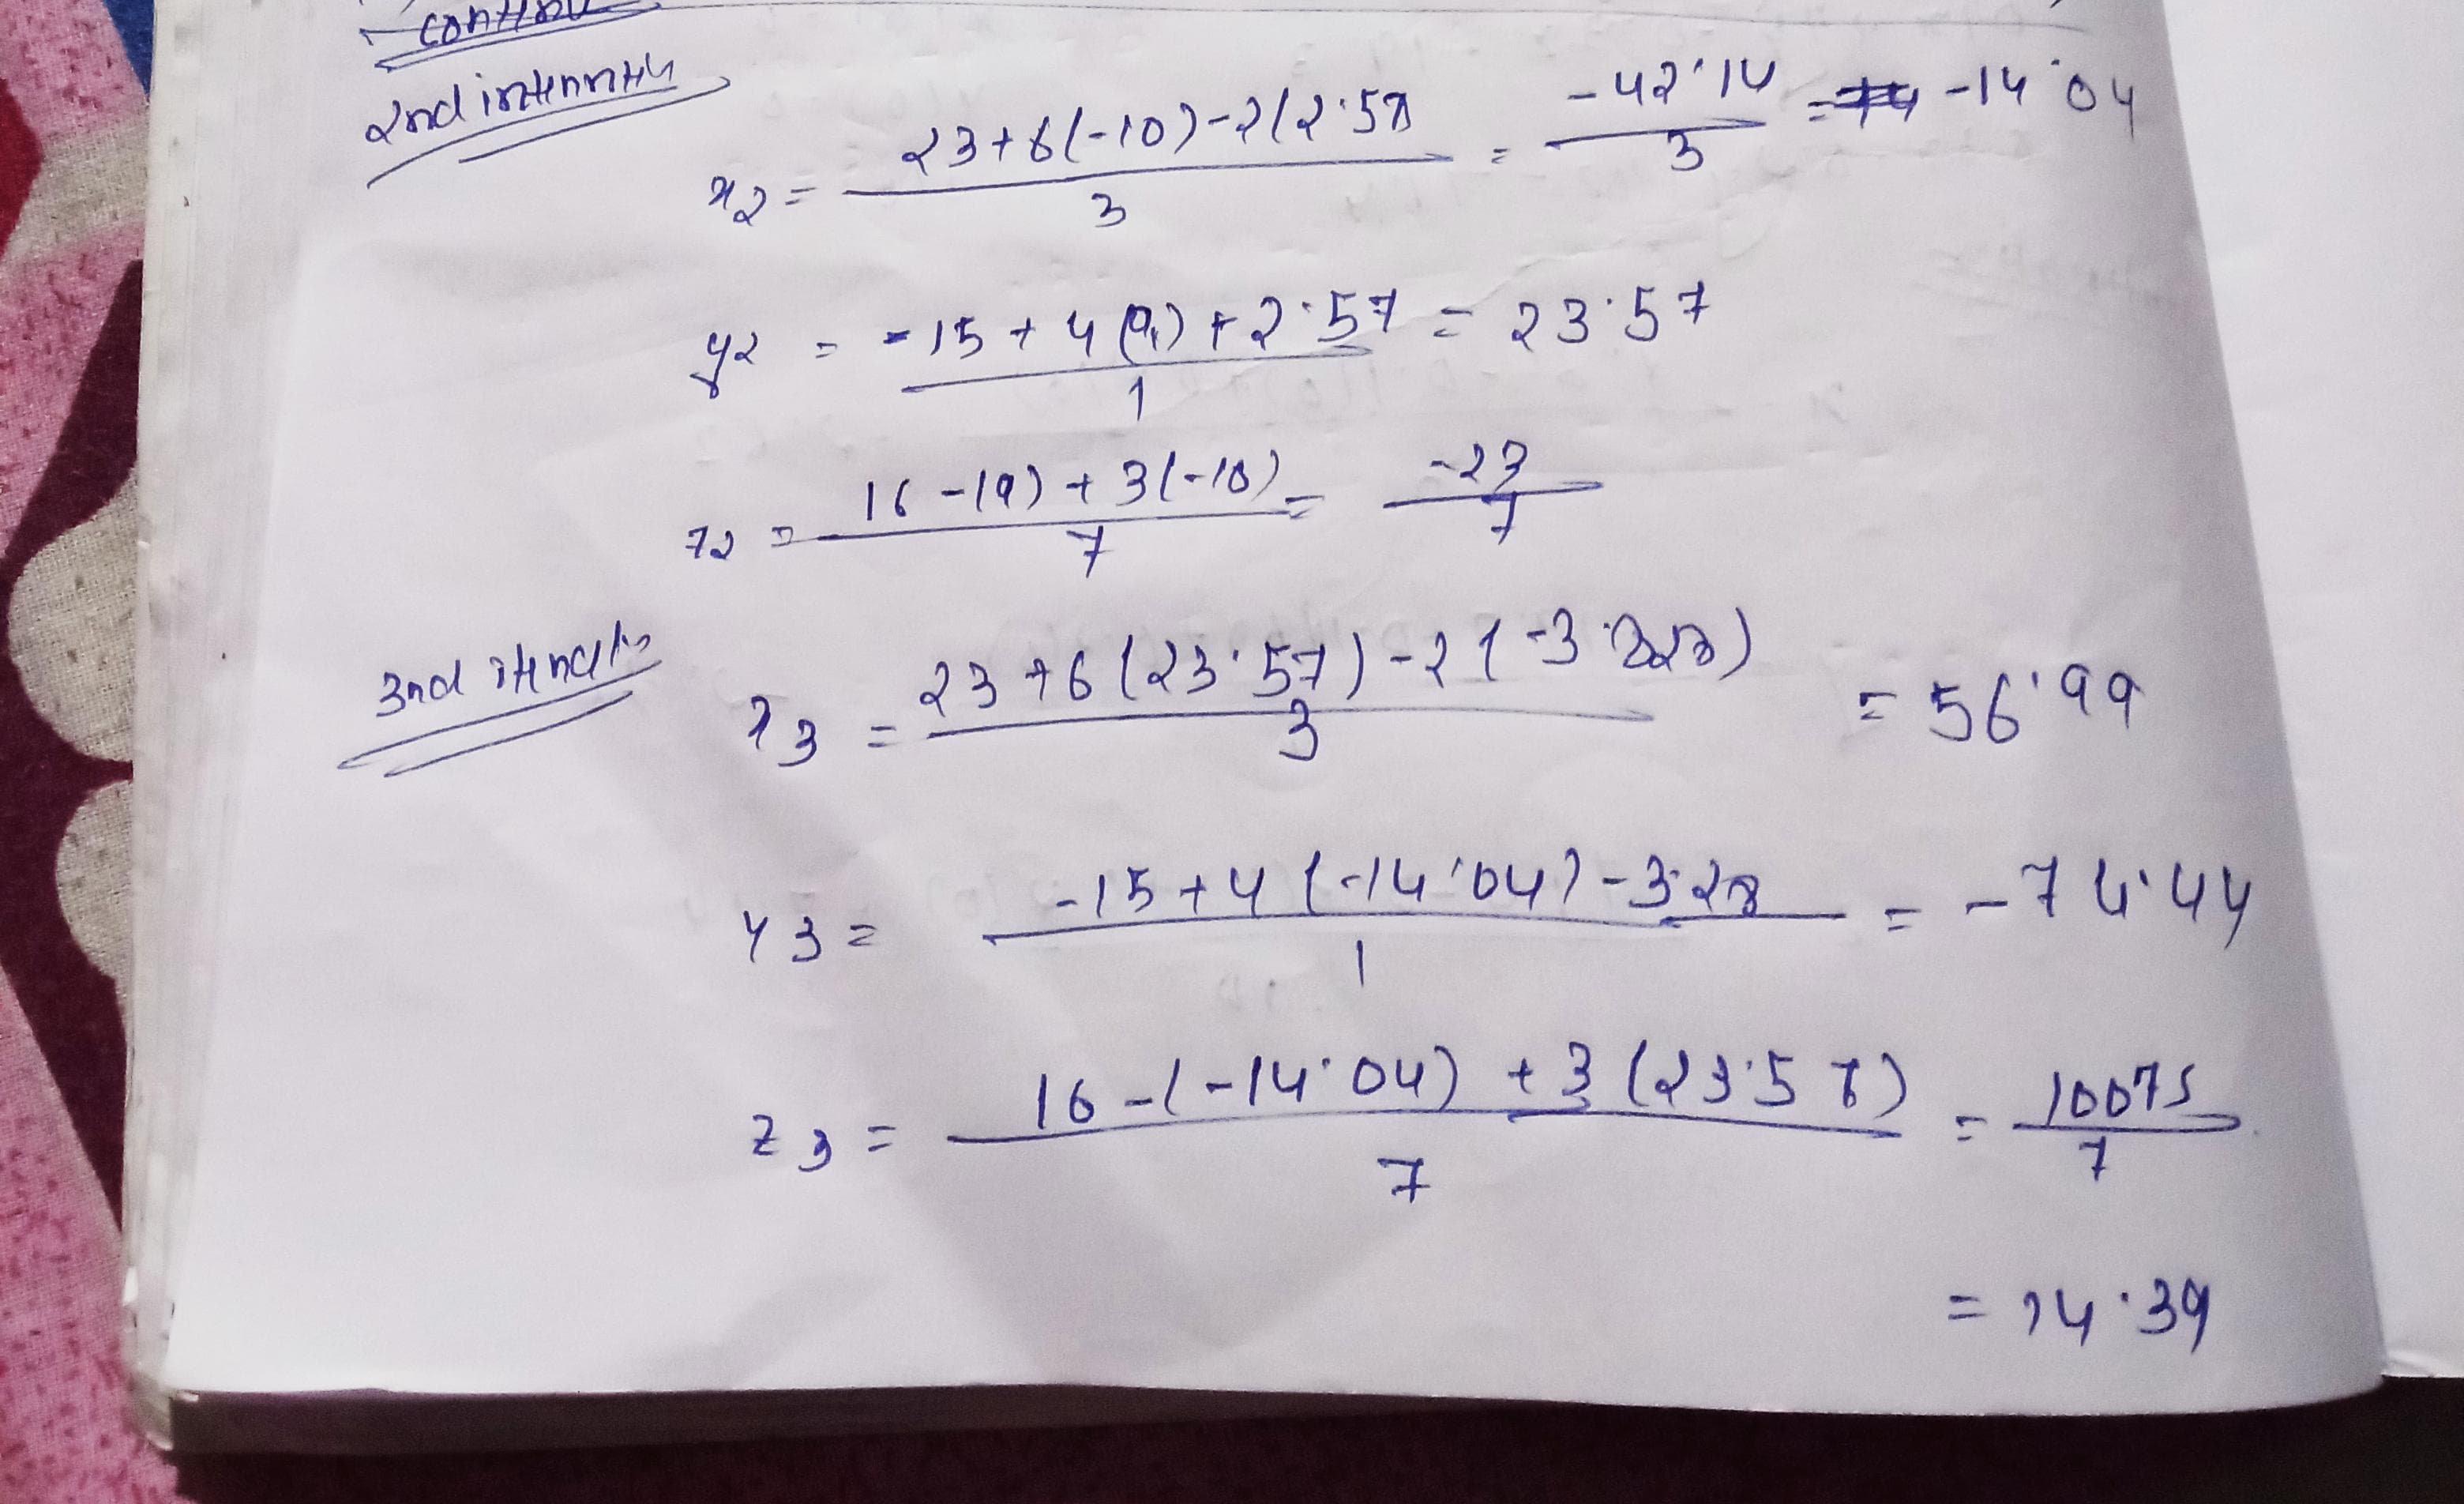 2nd
x2 = 23+6(-10)-2(2.57 / 3 = -42.14 / 3 = -14.04
y2 = -15+4(9)+2.57 / 1 = 23.57
z2 = 16-(9)+3(-10) / 7 = -23 / 7
3nd
x3 = 23+6(23.57)-2(-3.28) / 3 = 56.99
y3 = -15+4(-14.04)-3.28 / 1 = -74.44
z3 = 16-(-14.04)+3(23.57) / 7 = 10075 / 7
= 14.39